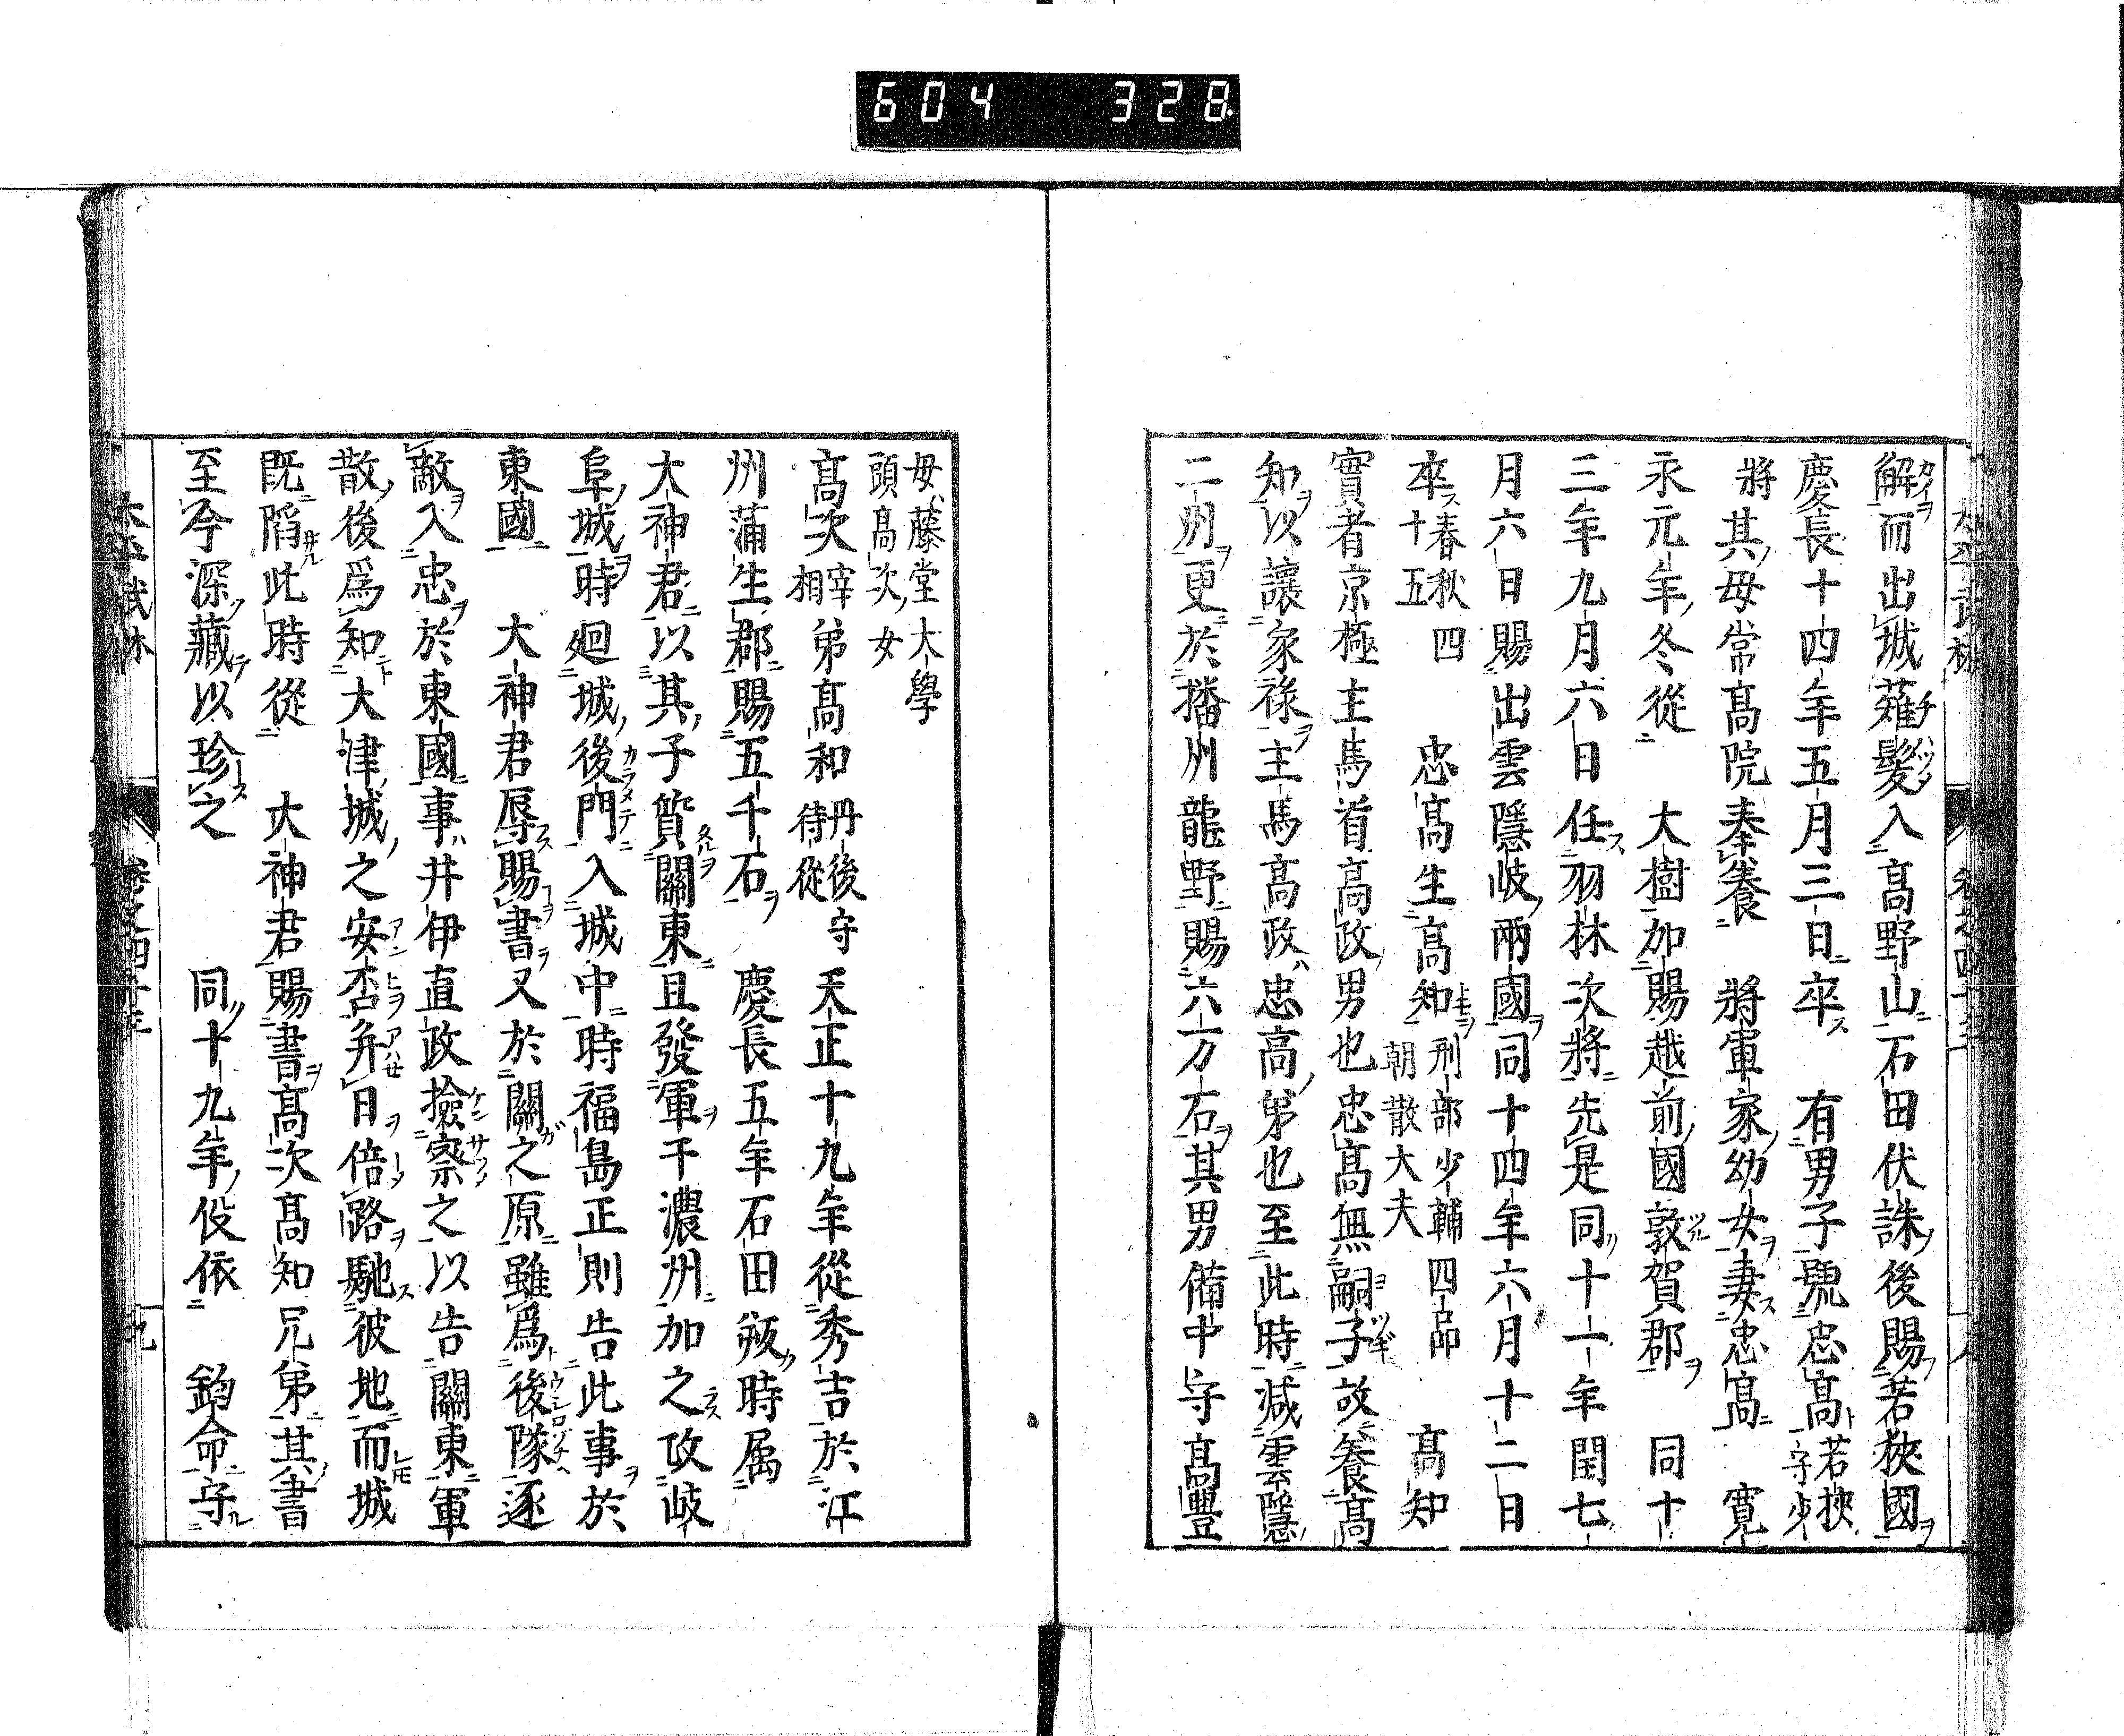 604 328
解而出城薙髮入高野山石田伏誅後賜若狹國
慶長十四年五月三日卒 有男子號忠高若狹守少
將其母常高院奉養 將軍家幼女妻忠高 寛
永元年冬從 大樹加賜越前國敦賀郡 同十
三年九月六日任羽林次將先是同十一年閏七
月六日賜出雲隱岐兩國同十四年六月十二日
卒春秋四十五 忠高生高知刑部少輔四品朝散大夫 高知
實者京極主馬首高政男也忠高無嗣子故養高
知以讓家祿主馬高政忠高弟也至此時減雲隱
二州更於播州龍野賜六万石其男備中守高豐
母藤堂大學頭高次女
高次宰相弟高和丹後守侍從天正十九年從秀吉於江
州蒲生郡賜五千石 慶長五年石田叛時属
大神君以其子質關東且發軍于濃州加之攻岐
阜城時廻城後門入城中時福島正則告此事於
東國 大神君辱賜書又於關之原雖爲後隊逐
敵入忠於東國事井伊直政撿察之以告關東軍
散後爲知大津城之安否并日倍路馳彼地而城
既陷此時從 大神君賜書高次高知兄弟其書
至今深藏以珍之 同十九年役依 鈞命守